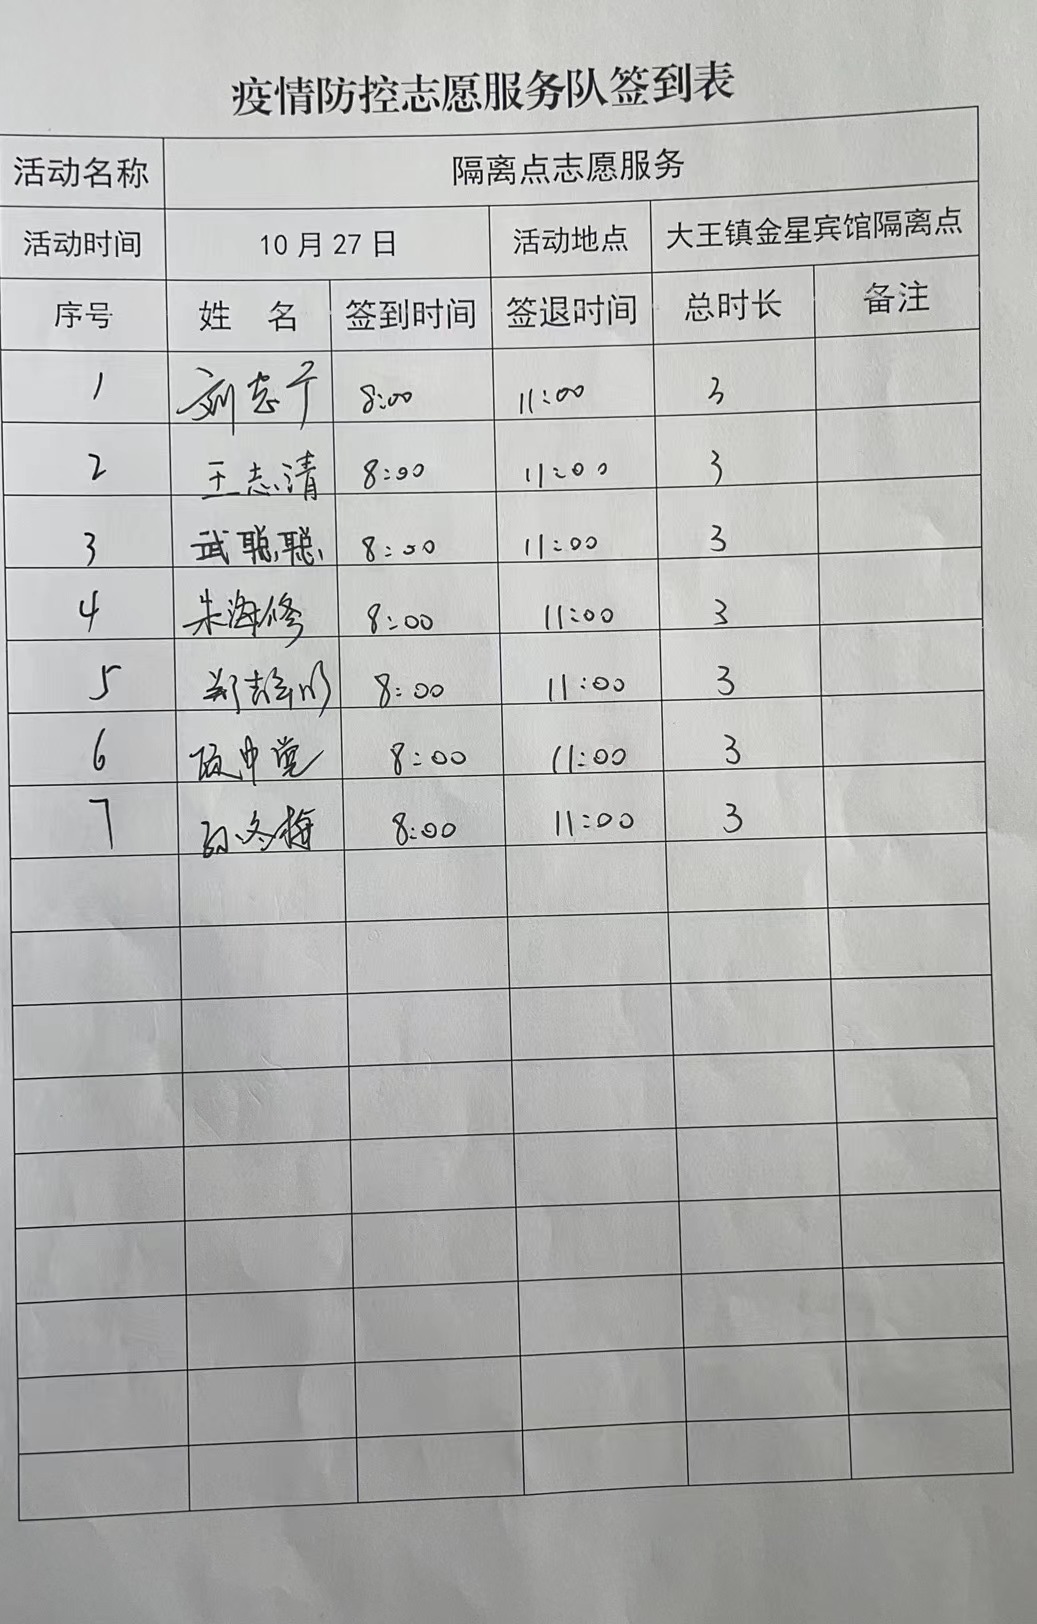 疫情防控志愿服务队签到表
活动名称 隔离点志愿服务
活动时间 10月27日 活动地点 大王镇金星宾馆隔离点
序号 姓 名 签到时间 签退时间 总时长 备注
1 刘志宁 8:00 11:00 3
2 王志清 8:00 11:00 3
3 武聪聪 8:00 11:00 3
4 朱海修 8:00 11:00 3
5 8:00 11:00 3
6 8:00 11:00 3
7 孙冬梅 8:00 11:00 3